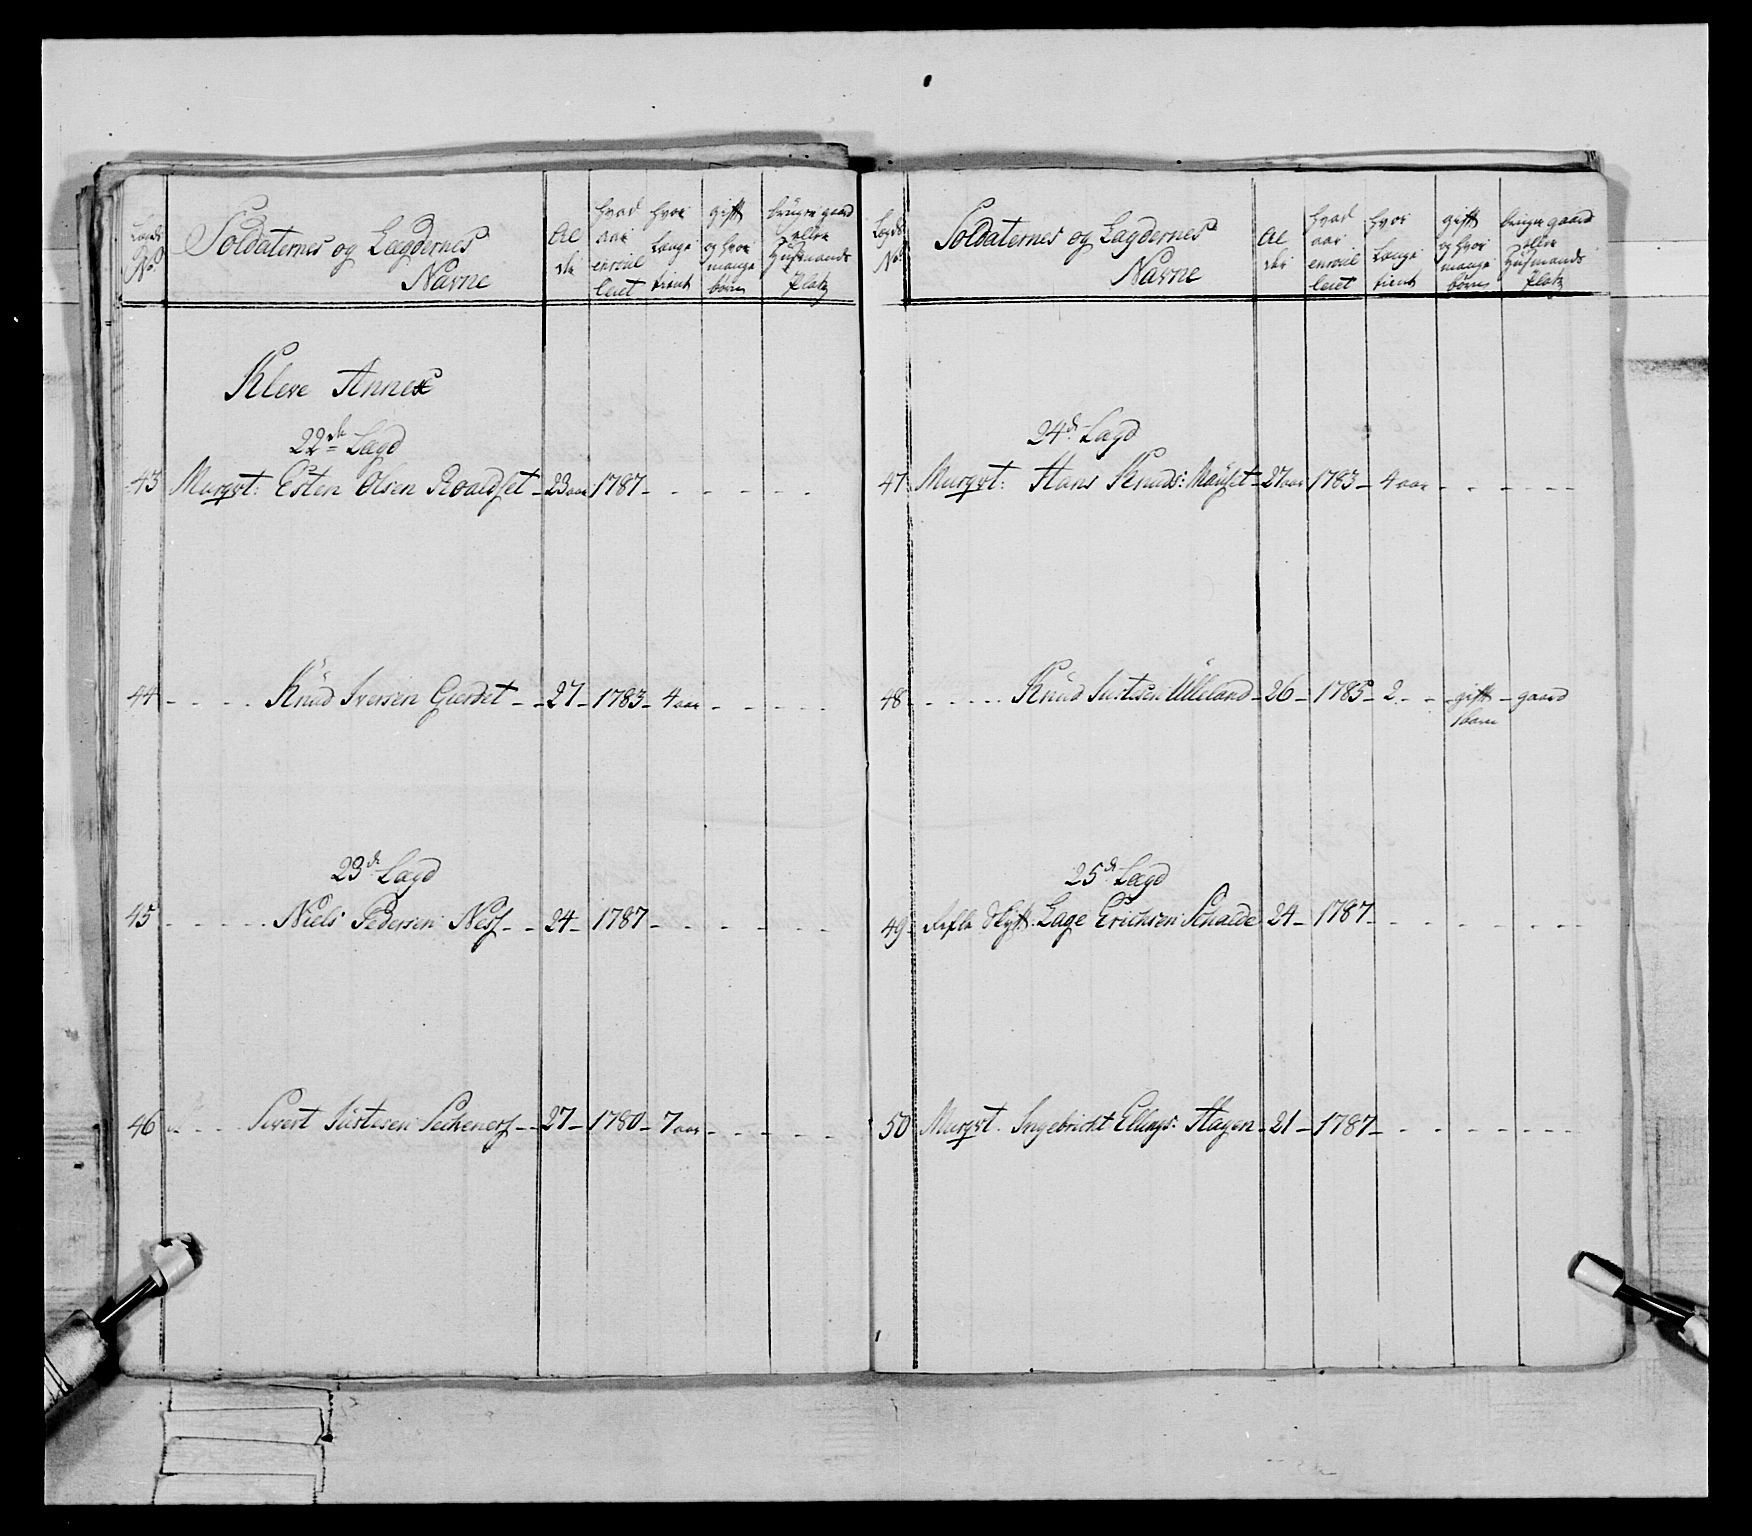 Lægds No Soldaternes og Lægdernes Navne Al der hvad aar enroul leret hvor længe tient gift og hvor mange børn bruger gaard eller Huusmands Platz
Kleve Annex
22de Lægd
43 Murqvt: Esten Olsen Roaldset 23 aar 1787
44 Knud Iversen Gierdet 27 1783 4 aar
23de Lægd
45 Niels Pedersen Ness 24 1787
46 Sivert Justesen 27 1780 7 aar
Lægds No Soldaternes og Lægdernes Navne Al der hvad aar enroul leret hvor længe tient gift og hvor mange børn bruger gaard eller Huusmands Platz
24de Lægd
47 Murqvt: Hans Knuds: Mauset 27 aar 1783 4 aar
48 Knud Justsen Ulleland 26 1785 2 gift gaard
1 barn
25de Lægd
49 Skytt: Lage Erichsen 24 1787
50 Murqvt. Ingebricht Ellings: Hagen 21 1787